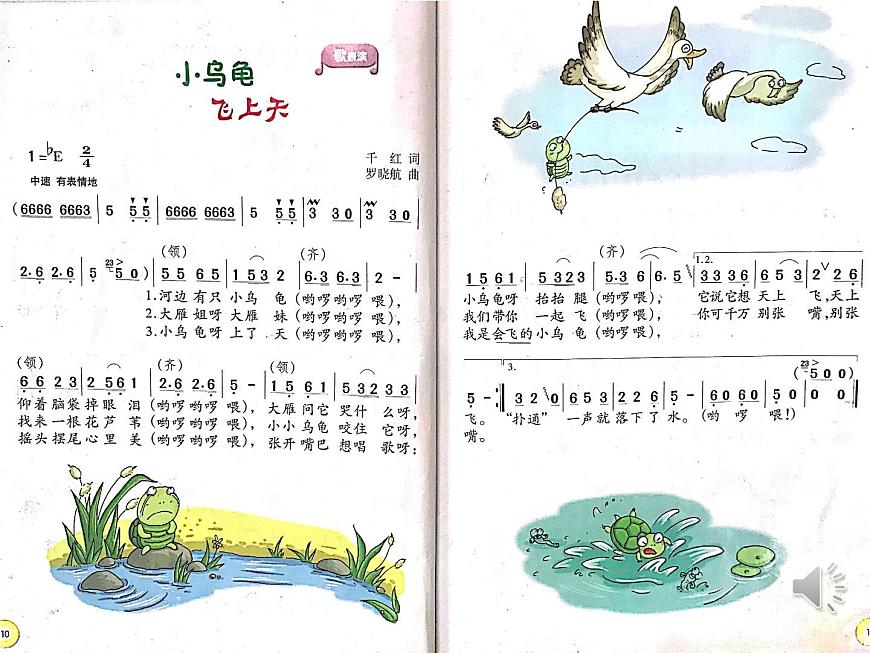 歌表演
小乌龟
飞上天
1=♭E 2/4
千 红 词
罗晓航 曲
中速 有表情地
(6666 6663 | 5 5 5 | 6666 6663 | 5 5 5 | 3 3 0 | 3 3 0 |
(领) (齐)
2·6 2·6 | 5 23 5 0 ) | 5 5 6 5 | 1 5 3 2 | 6·3 6·3 | 2 - |
1.河边 有只 小乌 龟 (哟啰哟啰 喂),
2.大雁 姐呀 大雁 妹 (哟啰哟啰 喂),
3.小乌 龟呀 上了 天 (哟啰哟啰 喂),
(领) (齐) (领)
6 6 2 3 | 2 5 6 1 | 2·6 2·6 | 5 - | 1 5 6 1 | 5 3 2 3 3 |
仰着 脑袋 掉眼 泪 (哟啰哟啰 喂), 大雁 问它 哭什 么呀,
找来 一根 花芦 苇 (哟啰哟啰 喂), 小小 乌龟 咬住 它呀,
摇头 摆尾 心里 美 (哟啰哟啰 喂), 张开 嘴巴 想唱 歌呀:
10
(齐)
1 5 6 1 | 5 3 3 2 3 | 5·3 6 | 6· 5 | 1.2. 3 3 3 6 | 6 5 3 | 2 ∨ 2 6 |
小乌龟呀 抬抬 腿 (哟啰喂), 它说它想 天上 飞,天上
我们带你 一起 飞 (哟啰喂), 你可千万 别张 嘴,别张
我是会飞的小乌 龟 (哟啰喂),
3. ( 23 5 0 0 )
5 - :| 3 2 0 | 6 5 3 | 2 2 6 | 5 - | 6 0 6 0 | 5 0 5 0 | 0 0 |
飞。 “扑通” 一声就 落下了 水。 (哟 啰 喂!)
嘴。